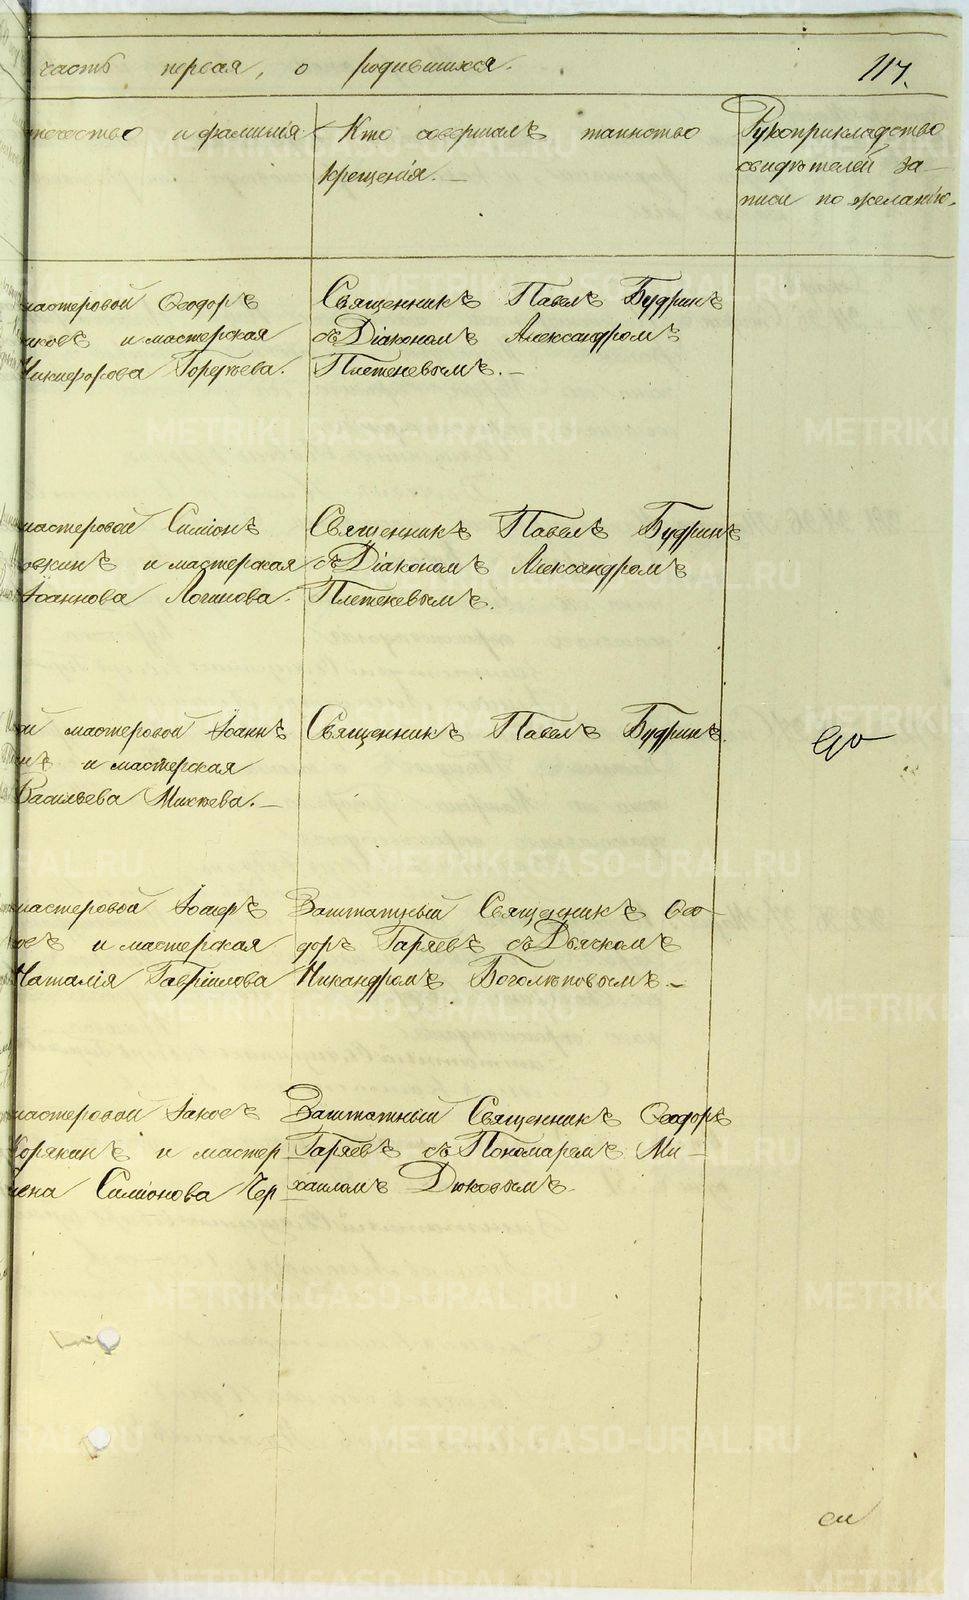 часть первая, о родившихся.
117.
отчество и фамилія
Кто совершалъ таинство
крещенія.
Рукоприкладство
свидѣтелей за-
писи по желанію.
мастеровой Ѳеодоръ
и мастерская
Никифорова Горбунова.
Священникъ Павелъ Будринъ
съ Діакономъ Александромъ
Плетеневымъ.
мастеровой Симіонъ
и мастерская
Іоаннова Логинова.
Священникъ Павелъ Будринъ
съ Діакономъ Александромъ
Плетеневымъ.
мастеровой Іоаннъ
и мастерская
Васильева Михѣева.
Священникъ Павелъ Будринъ.
мастеровой
и мастерская
Наталія Гавріилова
Заштатный Священникъ Ѳео-
доръ Гаряевъ съ Дьячкомъ
Никандромъ Боголѣповымъ
мастеровой Іаковъ
Корякинъ и мастер
Симіонова Чер
Заштатный Священникъ Ѳеодоръ
Гаряевъ съ Пономаремъ Ми-
хаиломъ Дюковымъ.
METRIKI.GASO-URAL.RU